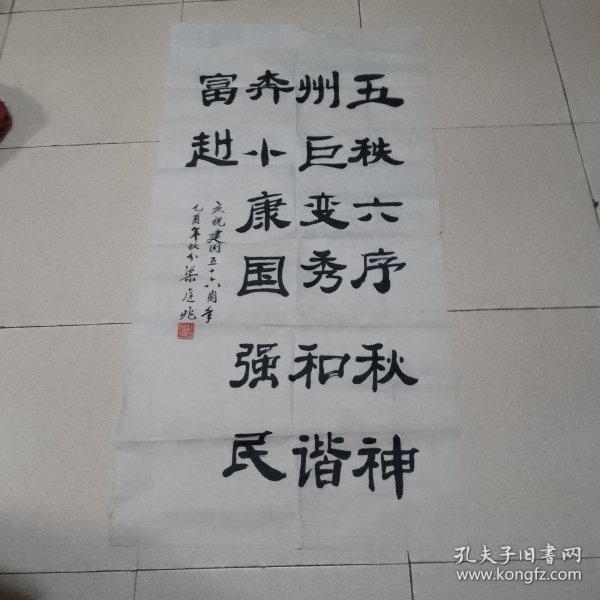 五秩六序秋神
州巨变秀和谐
奔小康国强民
富赳
庆祝建国五十六周年
乙酉年秋分梁廷兆
孔夫子旧书网
www.kongfz.com